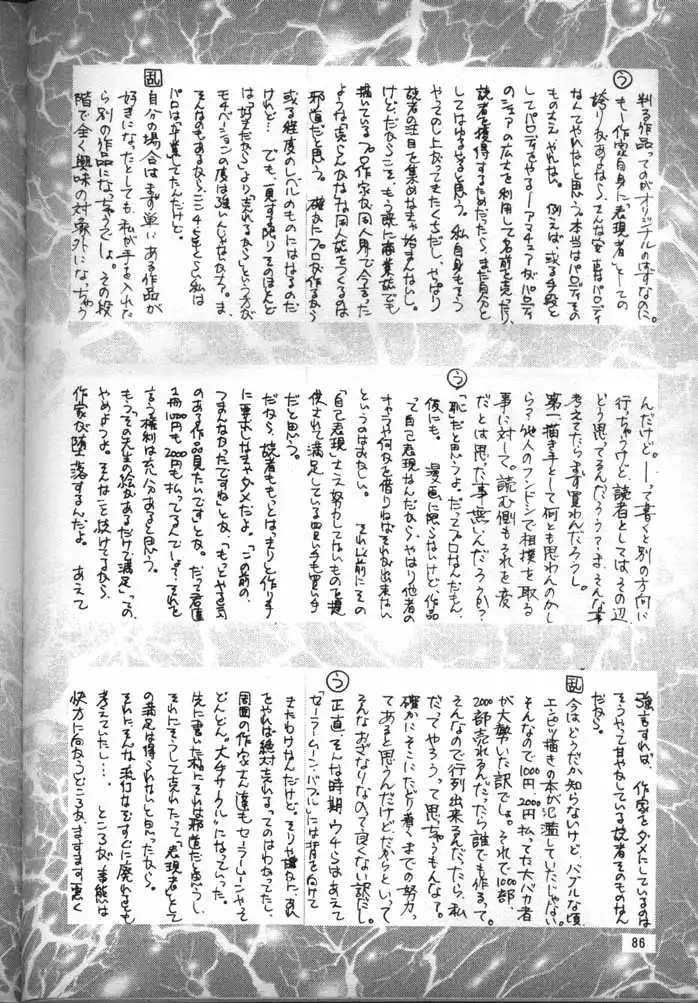 判る作品ってのがオリジナルのはずなのに。
う もし作家自身に「表現者」としての
誇りがあるなら、そんな安直なパロディ
なんてやれないと思う。本当はパロディその
ものさえやれない。例えば、或る手段と
してパロディをやる…アマチュアがパロディ
のシェアの広さを利用して名前を売ったり、
読者を獲得するためだったら、まだ自分と
してはゆるせると思う。私自身もそう
やってのし上がってきたくちだし、やっぱり
読者の注目を集めなきゃ始まんないし。
けど、だからこそ、もう既に商業誌でも
描いているプロ作家が同人界で今さらった
ような売らんかなみな同人誌をつくるのは
邪道だと思う。確かにプロが作るから
或る程度のレベルのものにはなるのだ
けれど…でも、一見する限りそのほとんど
は「好きだから」より「売れるから」という方が
モチベーションの度は強いんじゃないか?。ま、
そんなのもあるから、ここ3、4年くらい私は
パロは「卒業」してたんだけど。
乱 自分の場合はまず単にある作品が
好きになったとしても、私が手を入れた
ら別の作品になっちゃうでしょ。その段
階で全く興味の対象外になっちゃう
んだけど。…って書くと別の方向に
行っちゃうけど読者としてはその辺
どう思ってるんだろう?…ま、そんな事
考えてたらまず買わんだろうし。
第一描き手として何とも思わんのかし
ら?他人のフンドシで相撲を取る
事に対して。読む側もそれを変
だとは思った事無いんだろうか?
う 「恥」だと思うよ。だってプロなんだもん、
仮にも。漫画に限らないけど、作品
って自己表現なんだから、やはり他者の
キャラや何かを借りねばそれが出来ない
というのはおかしい。それ以前にその
「自己表現」さえ努力してないものを提
供されて満足している買い手も買い手
だと思う。
だから、読者ももっとはっきりと作り手
に要求しなきゃダメだよ。「この前の、
つまんなかったですね」とか、「もっとやる気
のある作品見たいです」とか。だって君達
1冊1000円も2000円も払ってるんでしょ?それを
言う権利は充分あると思う。
もう「その先生の絵があるだけで満足」っての、
やめようよ。そんな事続けてるから、
作家が堕落するんだよ。あえて
強言すれば、作家をダメにしているのは
そうやって甘やかしている読者そのものなん
だから。
乱 今はどうだか知らないけど、バブルな頃
エンピツ描きの本が氾濫していたじゃない。
そんなので1000円、2000円払ってた大バカ者
が大勢いた訳でしょ。それで1000部、
2000部売れるんだったら誰でも作るって。
そんなので行列出来るんだったら、私
だってやろうって思っちゃうもんなァ。
確かにそこにたどり着くまでの努力っ
てあると思うんだけど、だからといって
そんなおざなりなのって良くない訳だし。
う 正直、そんな時期ウチらはあえて
「セーラームーン・バブル」には背を向けて
きたわけなんだけど、そりゃ嫌なァ、あれ
をやれば絶対売れるってのはわかったし、
周囲の作家さん達もセーラームーンやって
どんどん「大手サークル」になっていった。
先に書いた私にそれは邪道だと思うし、
それにそうして売れたって「表現者」として
の満足は得られないと思ったから。
それにそんな流行なぞすぐに廃れるとも
考えていたし…。ところが、事態は
快方に向かうどころか、ますます悪く
86